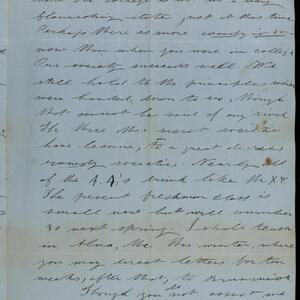 here the college is not in a very
flourishing state just at this time
Perhaps there is more rowdyism
now than when you were in college
Our society succeeds well. We
still hold to the principles which
were handed down to us, though
that cannot be said of any rival
The three other secret societies
have become, to a great degree
rowdy societies. Nearly all
of the A.A's drink like the X.Y.
The present freshman class is
small now but will number
30 next spring. I shall teach
in Alna, Me. this winter, where
you may direct letters for ten
weeks, after that, to Brunswick
Though you do not assist me